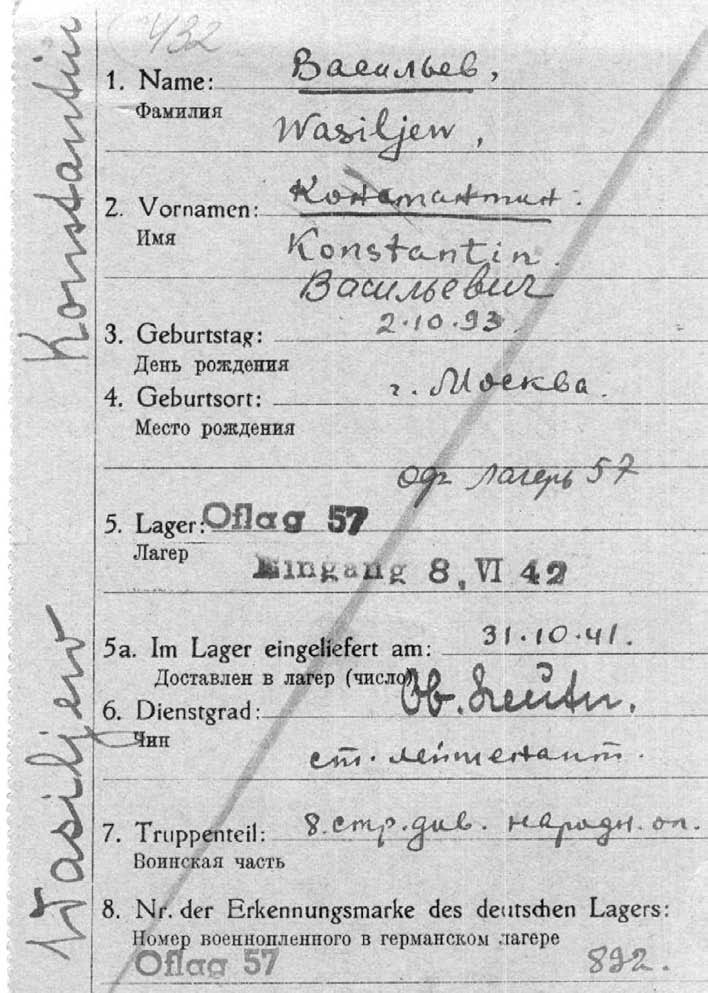 432
Konstantin
Wasiljew
1. Name: Васильев,
Фамилия
Wasiljew,
2. Vornamen: Константин.
Имя
Konstantin.
Васильевич
3. Geburtstag: 2.10.93.
День рождения
4. Geburtsort: г. Москва.
Место рождения
оф лагерь 57
5. Lager: Oflag 57
Лагер
Eingang 8. VI 42
5a. Im Lager eingeliefert am: 31.10.41.
Доставлен в лагер (число)
6. Dienstgrad: Ob. Leutn.
Чин
ст. лейтенант.
7. Truppenteil: 8. стр. див. народн. оп.
Воинская часть
8. Nr. der Erkennungsmarke des deutschen Lagers:
Номер военнопленного в германском лагере
Oflag 57 892.